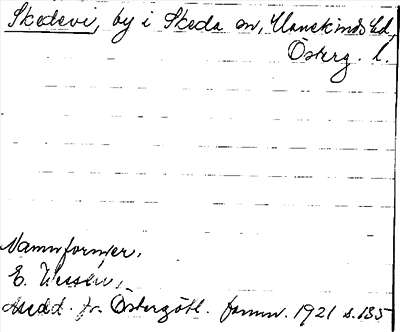 Skedevi, by i Skeda sn, Hanekinds hd,
Österg. l.
Namnformer.
E. Wessén,
Medd. fr. Östergötl. fornm. 1921 s. 135